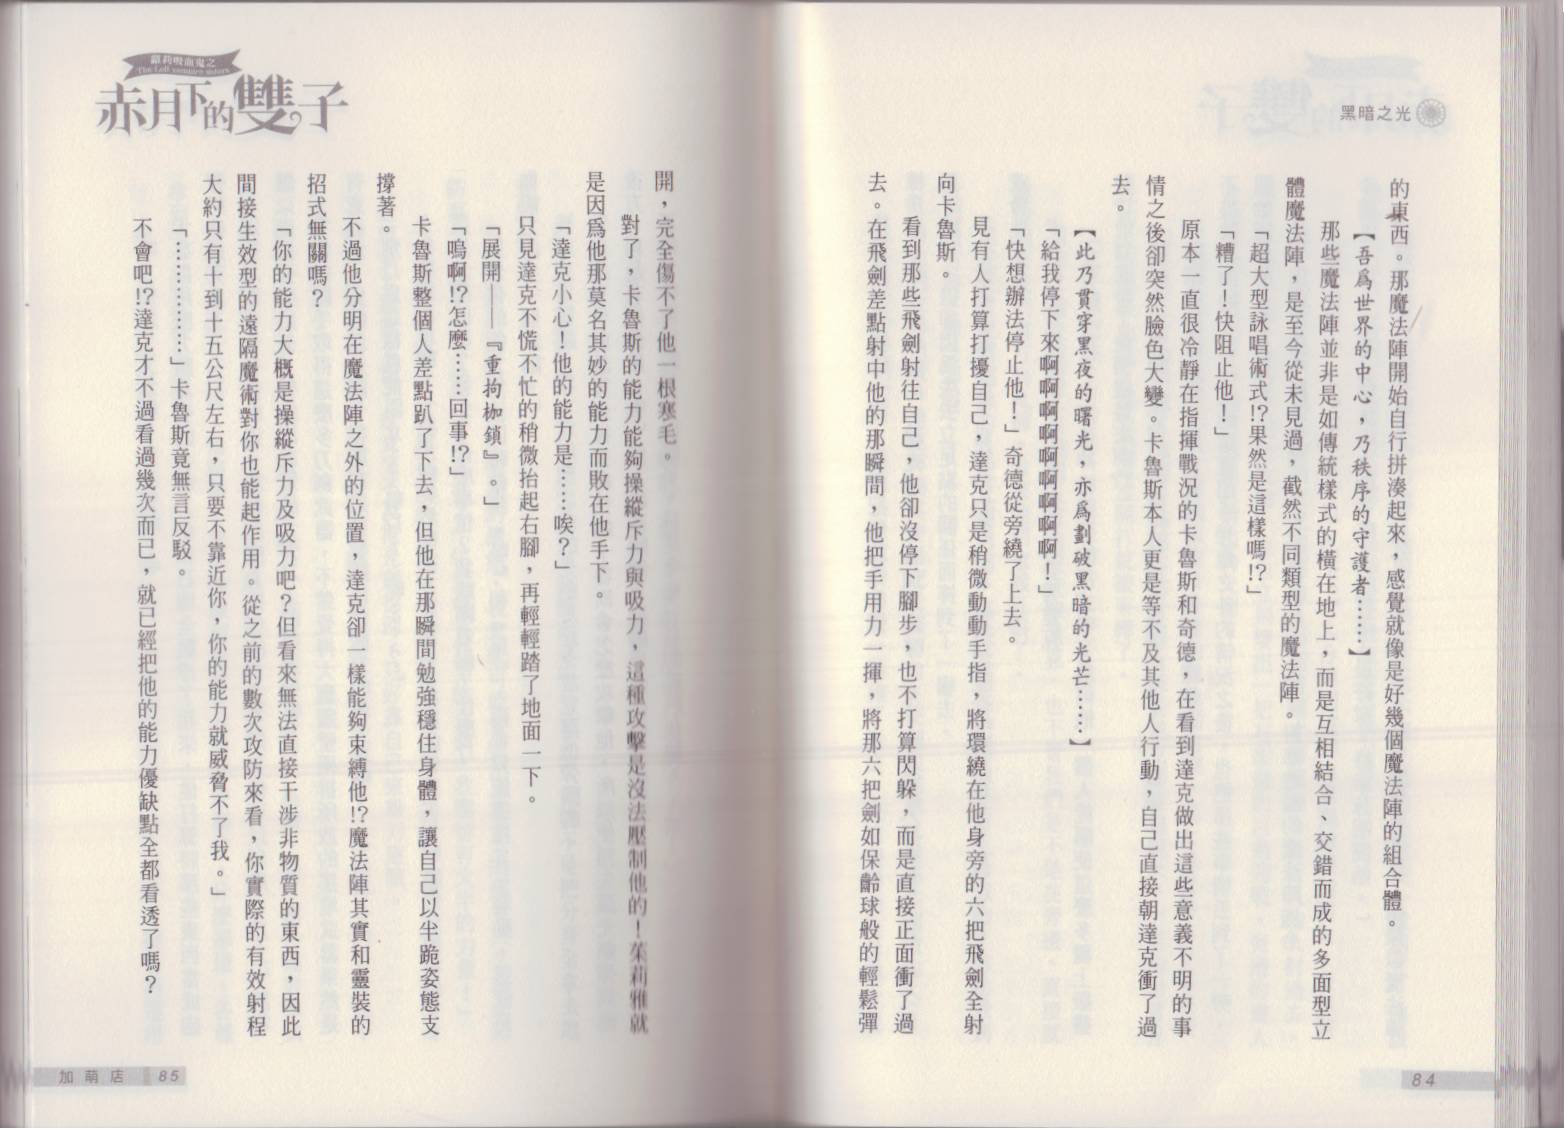 黑暗之光
的東西。那魔法陣開始自行拼湊起來，感覺就像是好幾個魔法陣的組合體。
【吾為世界的中心，乃秩序的守護者……】
那些魔法陣並非是如傳統樣式的橫在地上，而是互相結合、交錯而成的多面型立
體魔法陣，是至今從未見過，截然不同類型的魔法陣。
「超大型詠唱術式!?果然是這樣嗎!?」
「糟了！快阻止他！」
原本一直很冷靜在指揮戰況的卡魯斯和奇德，在看到達克做出這些意義不明的事
情之後卻突然臉色大變。卡魯斯本人更是等不及其他人行動，自己直接朝達克衝了過
去。
【此乃貫穿黑夜的曙光，亦為劃破黑暗的光芒……】
「給我停下來啊啊啊啊啊啊啊啊！」
「快想辦法停止他！」奇德從旁繞了上去。
見有人打算打擾自己，達克只是稍微動動手指，將環繞在他身旁的六把飛劍全射
向卡魯斯。
看到那些飛劍射往自己，他卻沒停下腳步，也不打算閃躲，而是直接正面衝了過
去。在飛劍差點射中他的那瞬間，他把手用力一揮，將那六把劍如保齡球般的輕鬆彈
84
蘿莉吸血鬼之
The Loli vampire sisters
赤月下的雙子
開，完全傷不了他一根寒毛。
對了，卡魯斯的能力能夠操縱斥力與吸力，這種攻擊是沒法壓制他的！茱莉雅就
是因為他那莫名其妙的能力而敗在他手下。
「達克小心！他的能力是……唉？」
只見達克不慌不忙的稍微抬起右腳，再輕輕踏了地面一下。
「展開——『重拘枷鎖』。」
「嗚啊!?怎麼……回事!?」
卡魯斯整個人差點趴了下去，但他在那瞬間勉強穩住身體，讓自己以半跪姿態支
撐著。
不過他分明在魔法陣之外的位置，達克卻一樣能夠束縛他!?魔法陣其實和靈裝的
招式無關嗎？
「你的能力大概是操縱斥力及吸力吧？但看來無法直接干涉非物質的東西，因此
間接生效型的遠隔魔術對你也能起作用。從之前的數次攻防來看，你實際的有效射程
大約只有十到十五公尺左右，只要不靠近你，你的能力就威脅不了我。」
「……………」卡魯斯竟無言反駁。
不會吧!?達克才不過看過幾次而已，就已經把他的能力優缺點全都看透了嗎？
加萌店 85